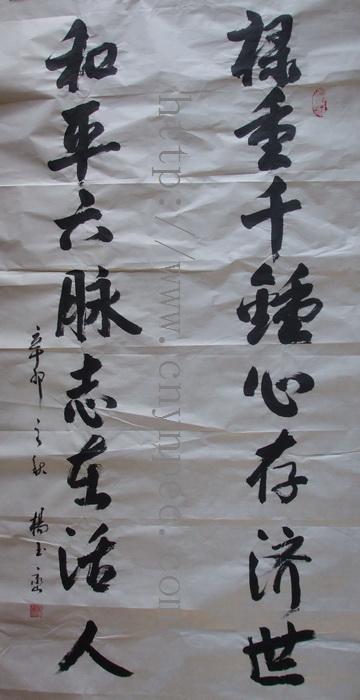 禄重千鍾心存济世
和平六脉志在活人
辛卯之秋 楊玉
http://www.cnymec.com